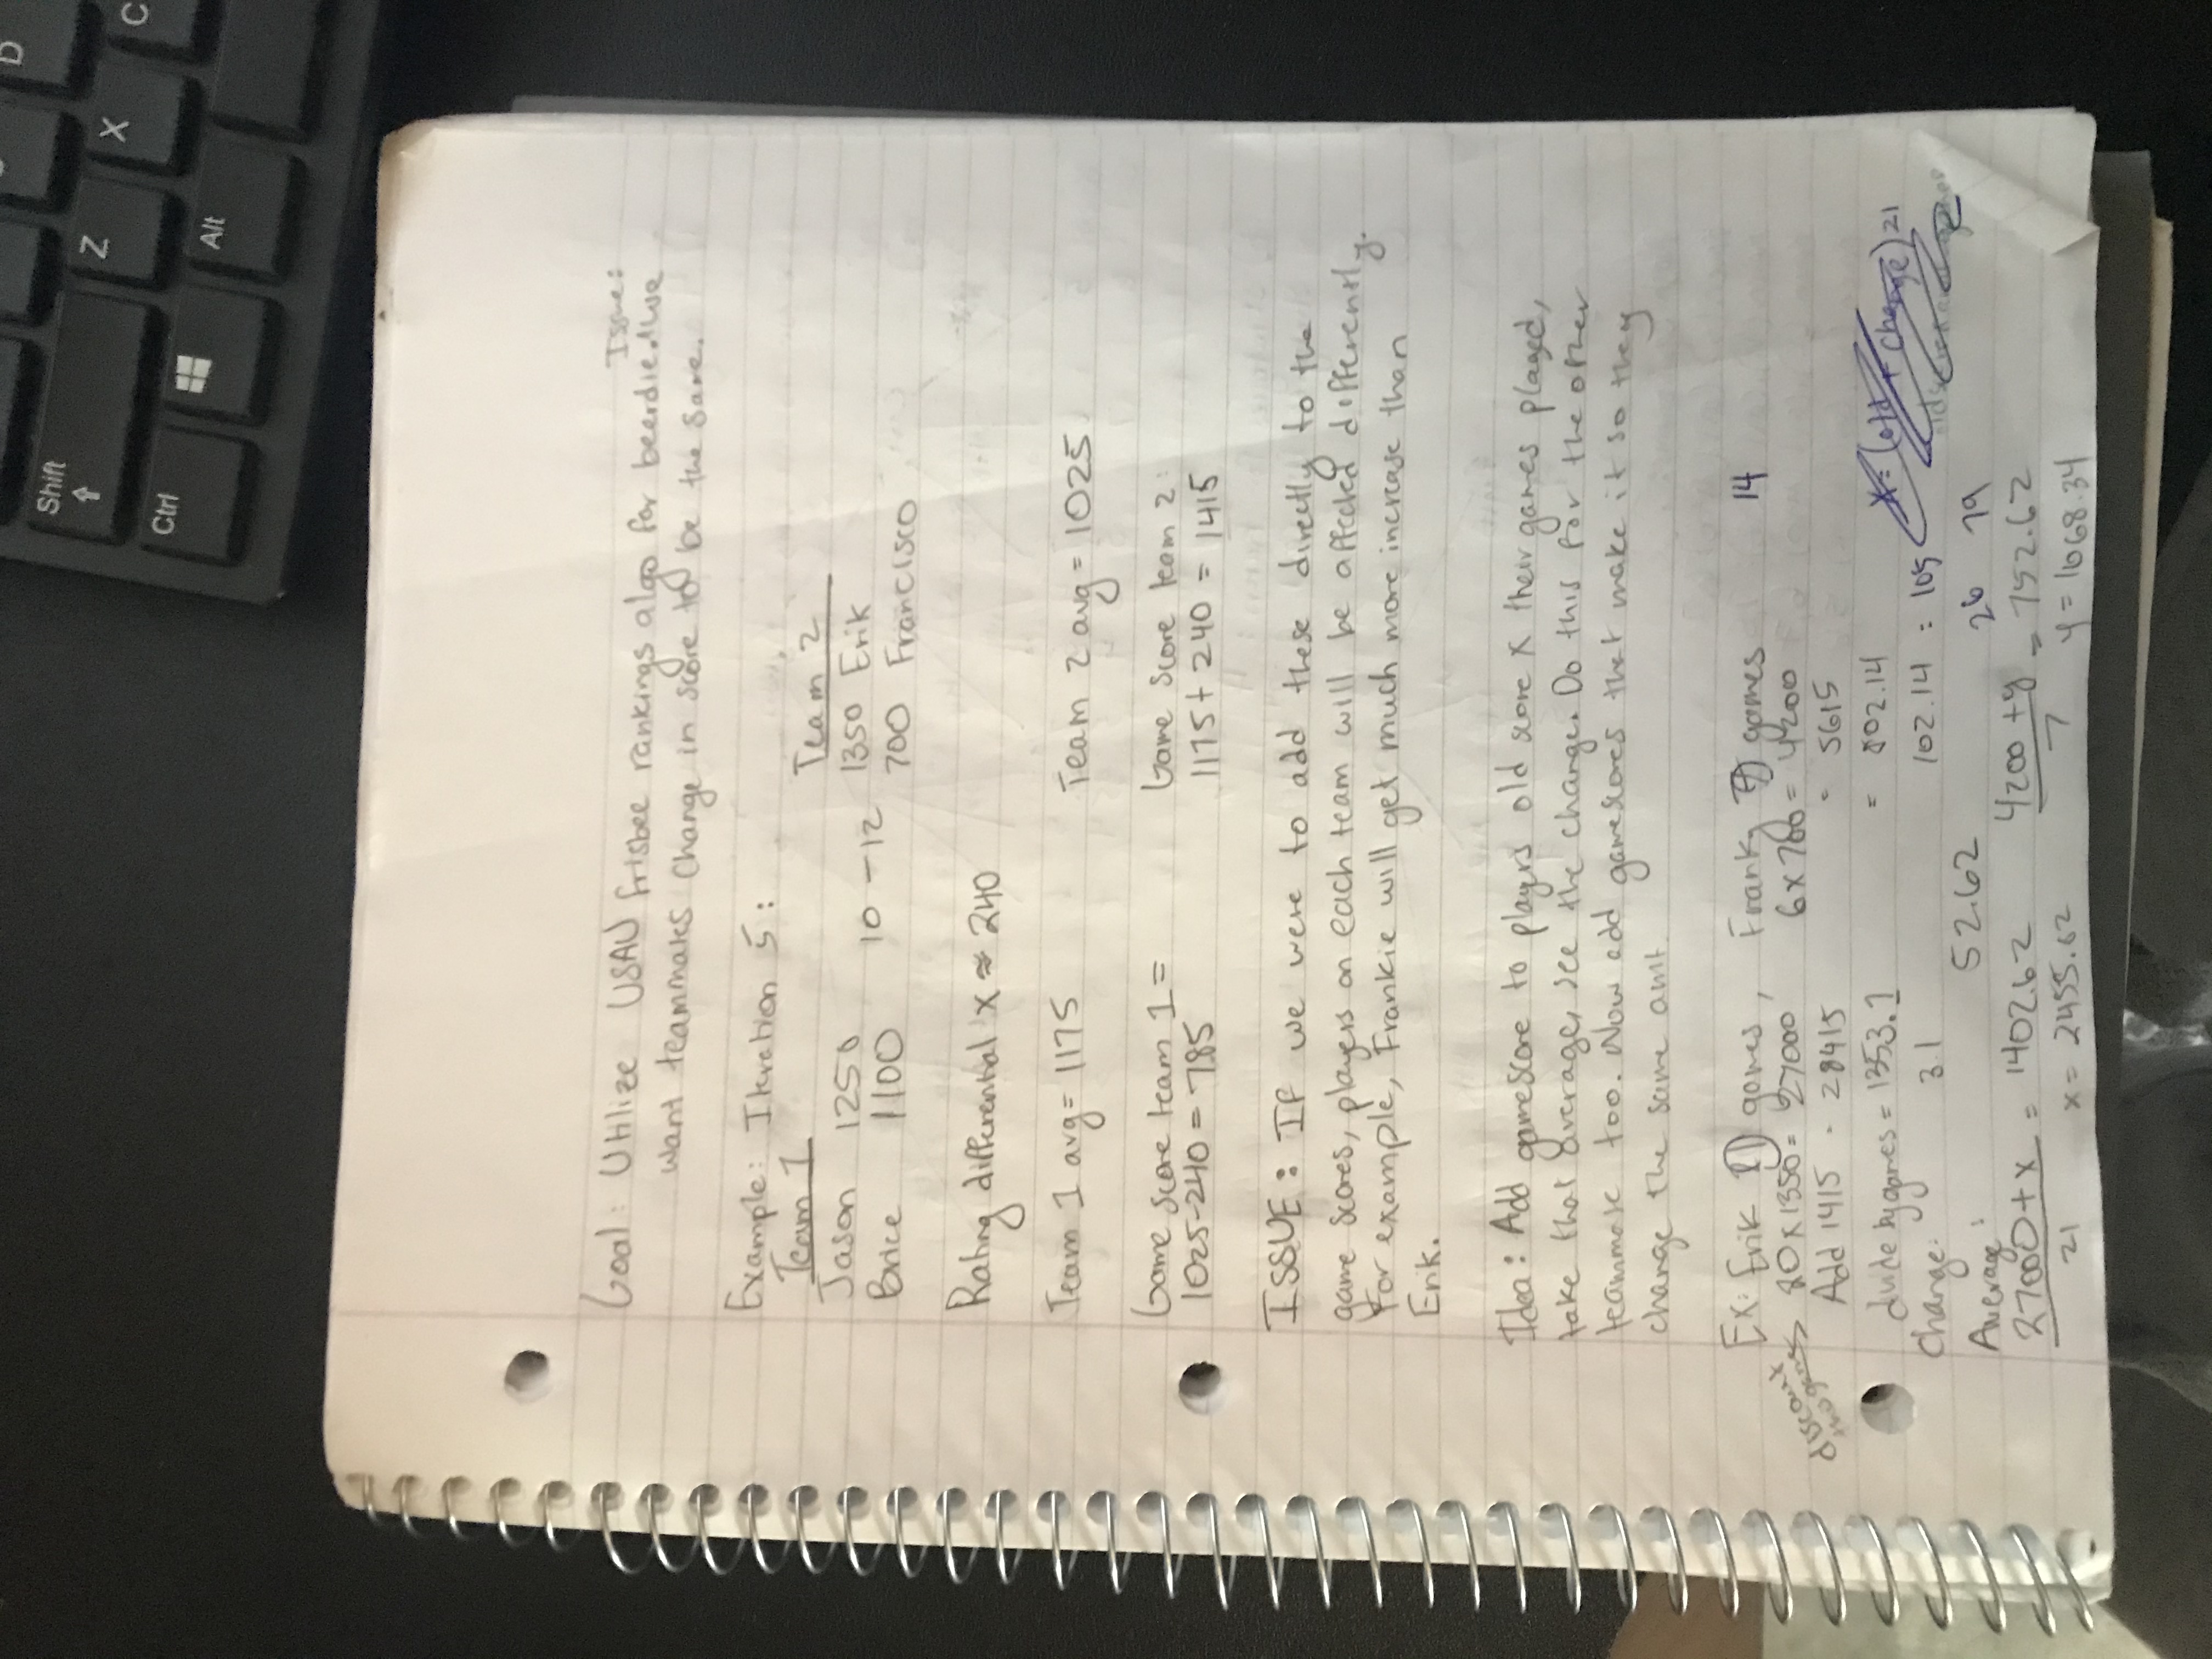 D
Shift
Z
X
C
Ctrl
Alt
Issue:
Goal: Utilize USAU frisbee rankings algo for beerdie. ↑we
want teammates change in score to be the same.
Example: Iteration 5:
Team 1 Team 2
Jason 1250 10 - 12 1350 Erik
Brice 1100 700 Francisco
Rating differential x ≈ 240
Team 1 avg = 1175 Team 2 avg = 1025
Game score team 1 = Game score team 2:
1025-240 = 785 1175 + 240 = 1415
ISSUE: If we were to add these directly to the
game scores, players on each team will be affected differently.
For example, Frankie will get much more increase than
Erik.
Idea: Add gamescore to players old score x their games played,
take that average, see the change. Do this for the other
teammate too. Now add gamescores that make it so they
change the same amt.
Ex: Erik 21 games, Franky 7 games 14
discount this game → 20 x 1350 = 27000 6 x 700 = 4200
Add 1415 = 28415 = 5615
divide by games = 1353.1 = 802.14 x = (old + change) 21
Change: 3.1 102.14 = 105
Average: 52.62 26 79
27000 + x / 21 = 1402.62 4200 + y / 7 = 752.62
x = 2455.02 y = 1068.34